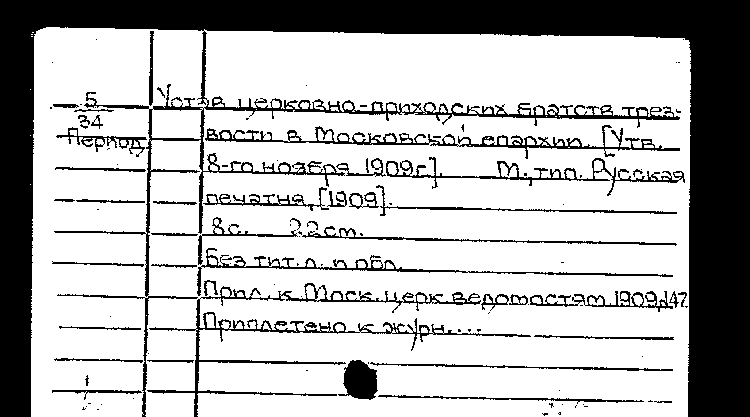 5
34
Период
Устав церковно-приходских братств трез-
вости в Московской епархии. [Утв.
8-го ноября 1909г]. М., тип. Русская
печатня, [1909].
8с. 22см.
Без тит. л. и обл.
Прил. к Моск. церк ведомостям 1909,
Приплетено к журн....